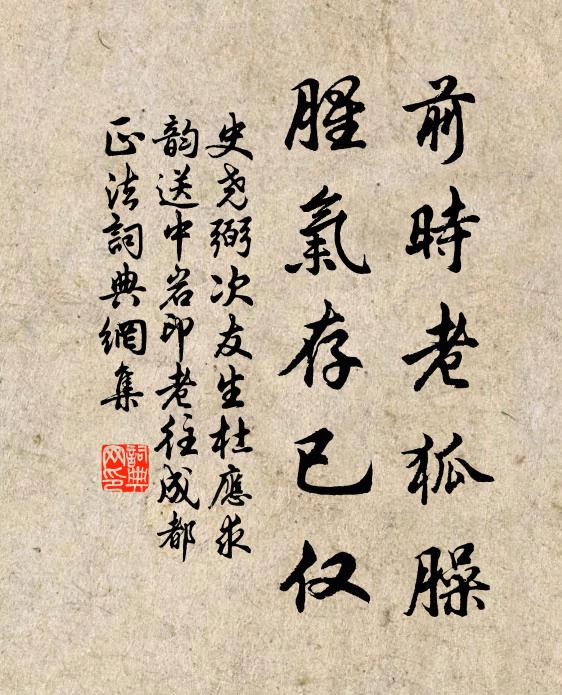 前時老狐臊
腥氣存已仅
史尧弼次友生杜應求
韵送中岩印老往成都
正法詞典網集
詞典网印